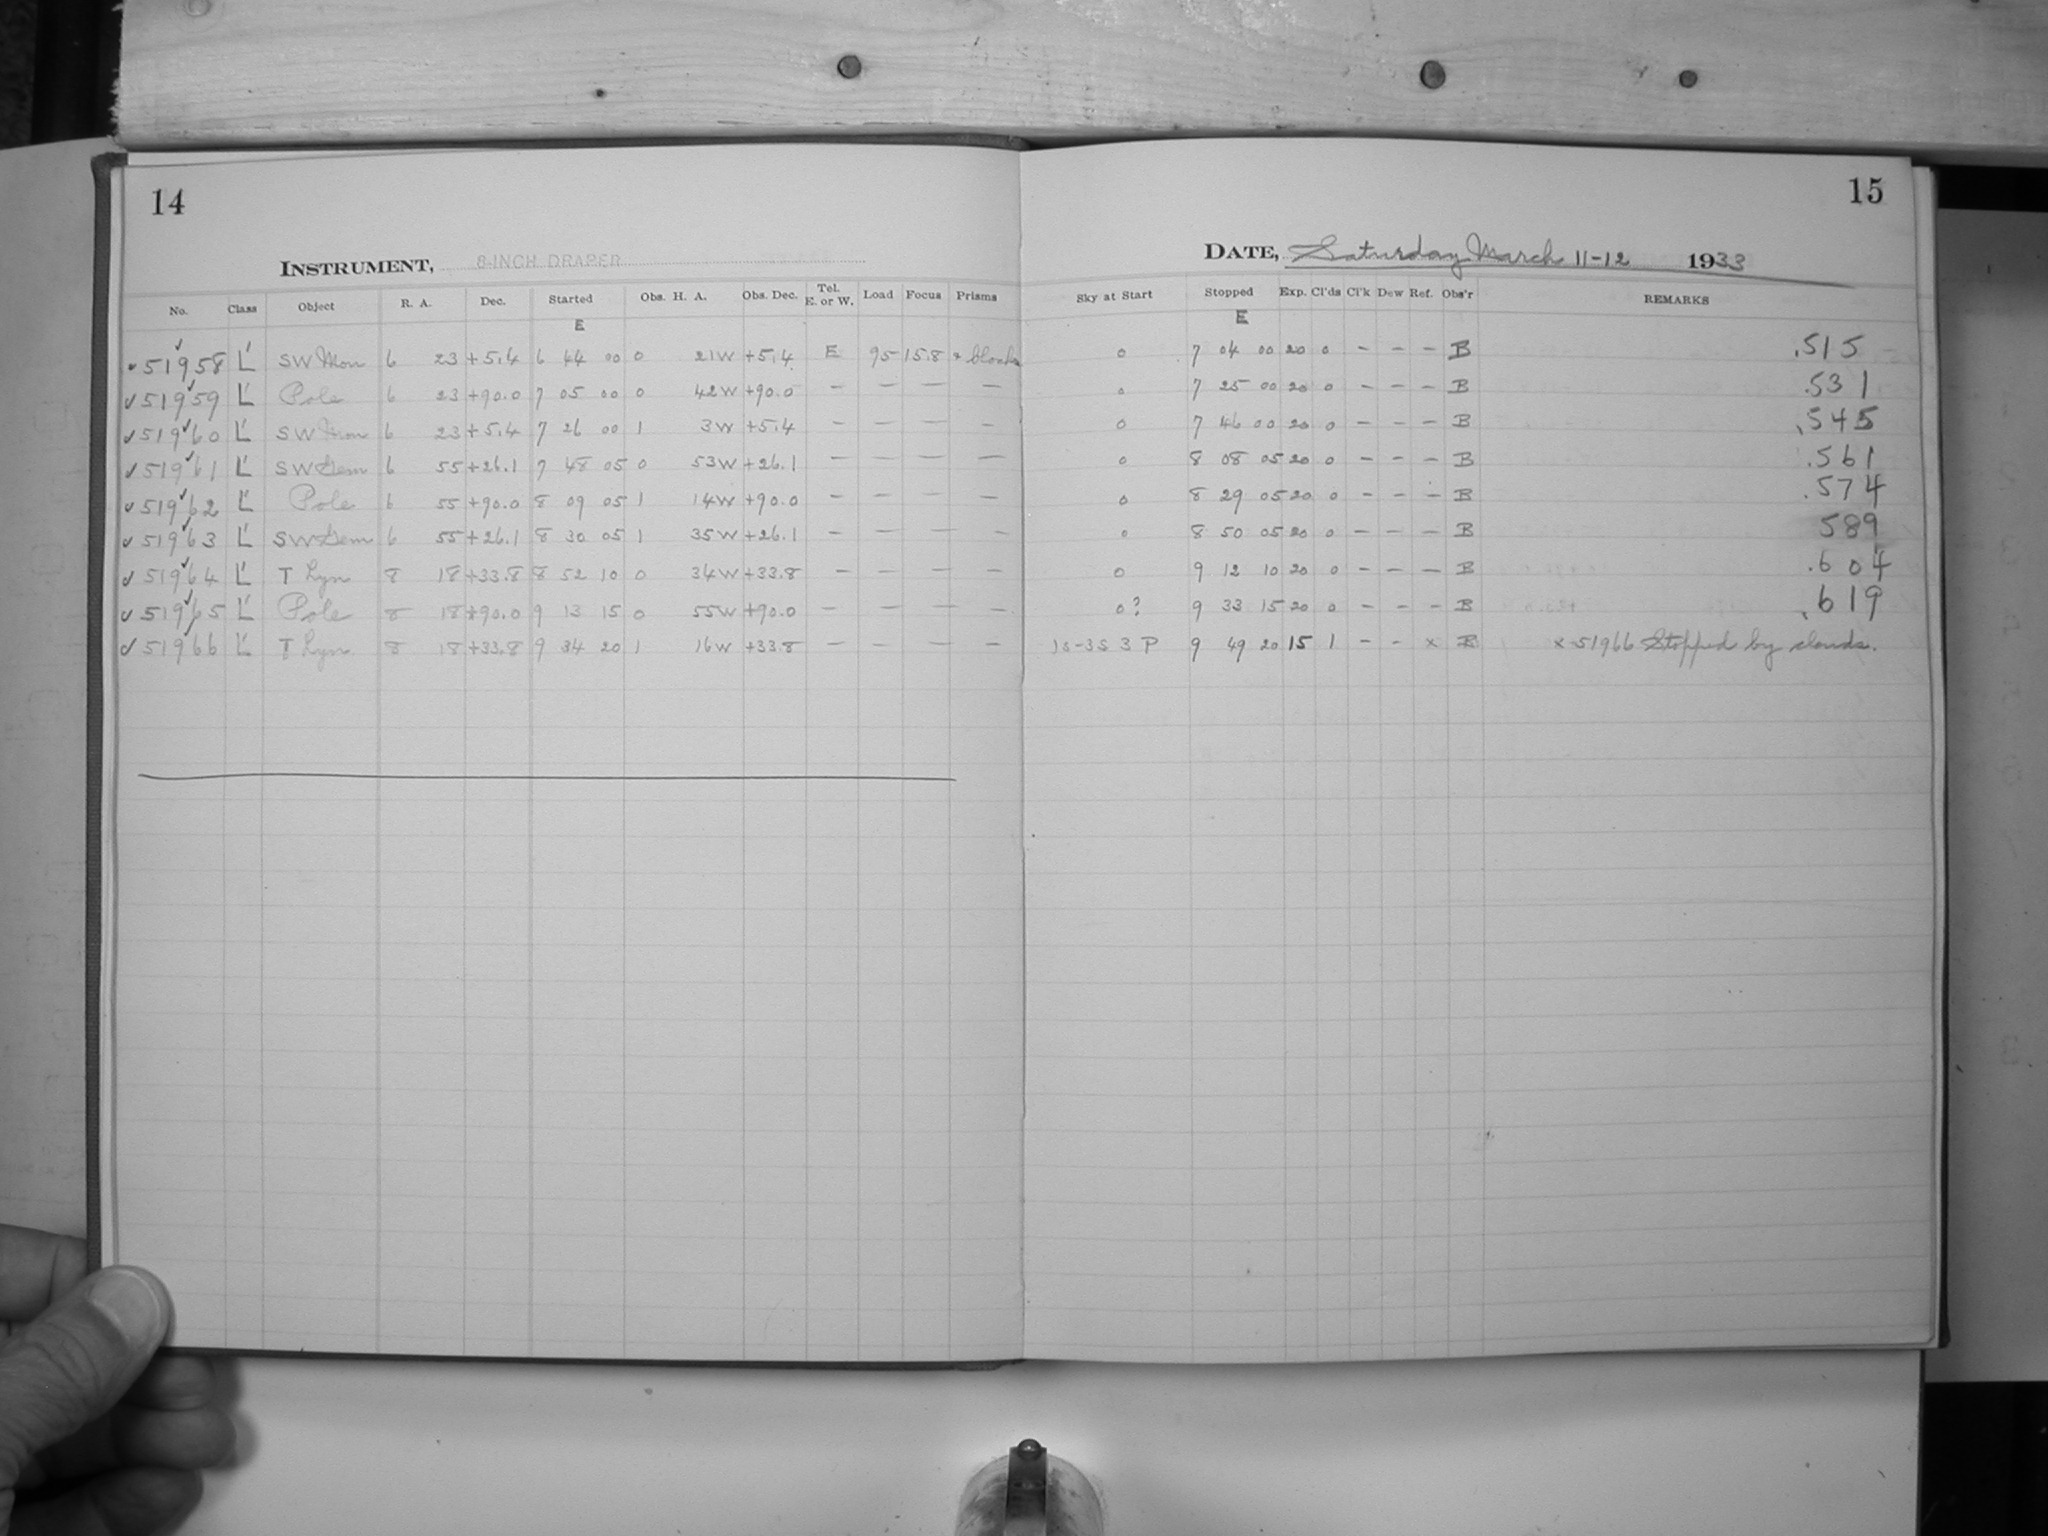 14
INSTRUMENT, 8-INCH DRAPER
No. Class Object R. A. Dec. Started Obs. H. A. Obs. Dec. Tel. E. or W. Load Focus Prisms
E
✓51958 L' SW Mon 6 23 +5.4 6 44 00 0 21W +5.4 E 95 15.8
✓51959 L' Pole 6 23 +90.0 7 05 00 0 42W +90.0 — — — —
✓51960 L' SW Mon 6 23 +5.4 7 26 00 1 3W +5.4 — — — —
✓51961 L' SW Gem 6 55 +26.1 7 48 05 0 53W +26.1 — — — —
✓51962 L' Pole 6 55 +90.0 8 09 05 1 14W +90.0 — — — —
✓51963 L' SW Gem 6 55 +26.1 8 30 05 1 35W +26.1 — — — —
✓51964 L' T Lyn 8 18 +33.8 8 52 10 0 34W +33.8 — — — —
✓51965 L' Pole 8 18 +90.0 9 13 15 0 55W +90.0 — — — —
✓51966 L' T Lyn 8 18 +33.8 9 34 20 1 16W +33.8 — — — —
15
DATE, Saturday March 11-12 1933
Sky at Start Stopped Exp. Cl'ds Cl'k Dew Ref. Obs'r REMARKS
E
0 7 04 00 20 0 — — — B .515
0 7 25 00 20 0 — — — B .531
0 7 46 00 20 0 — — — B .545
0 8 08 05 20 0 — — — B .561
0 8 29 05 20 0 — — — B .574
0 8 50 05 20 0 — — — B 589
0 9 12 10 20 0 — — — B .604
0? 9 33 15 20 0 — — — B .619
1S-3S 3 P 9 49 20 15 1 — — x B x 51966 Stopped by clouds.